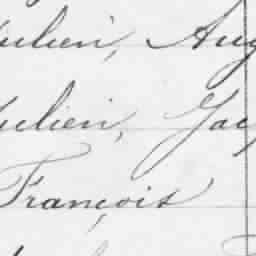 ulien, Aug
ulien, Jac
François